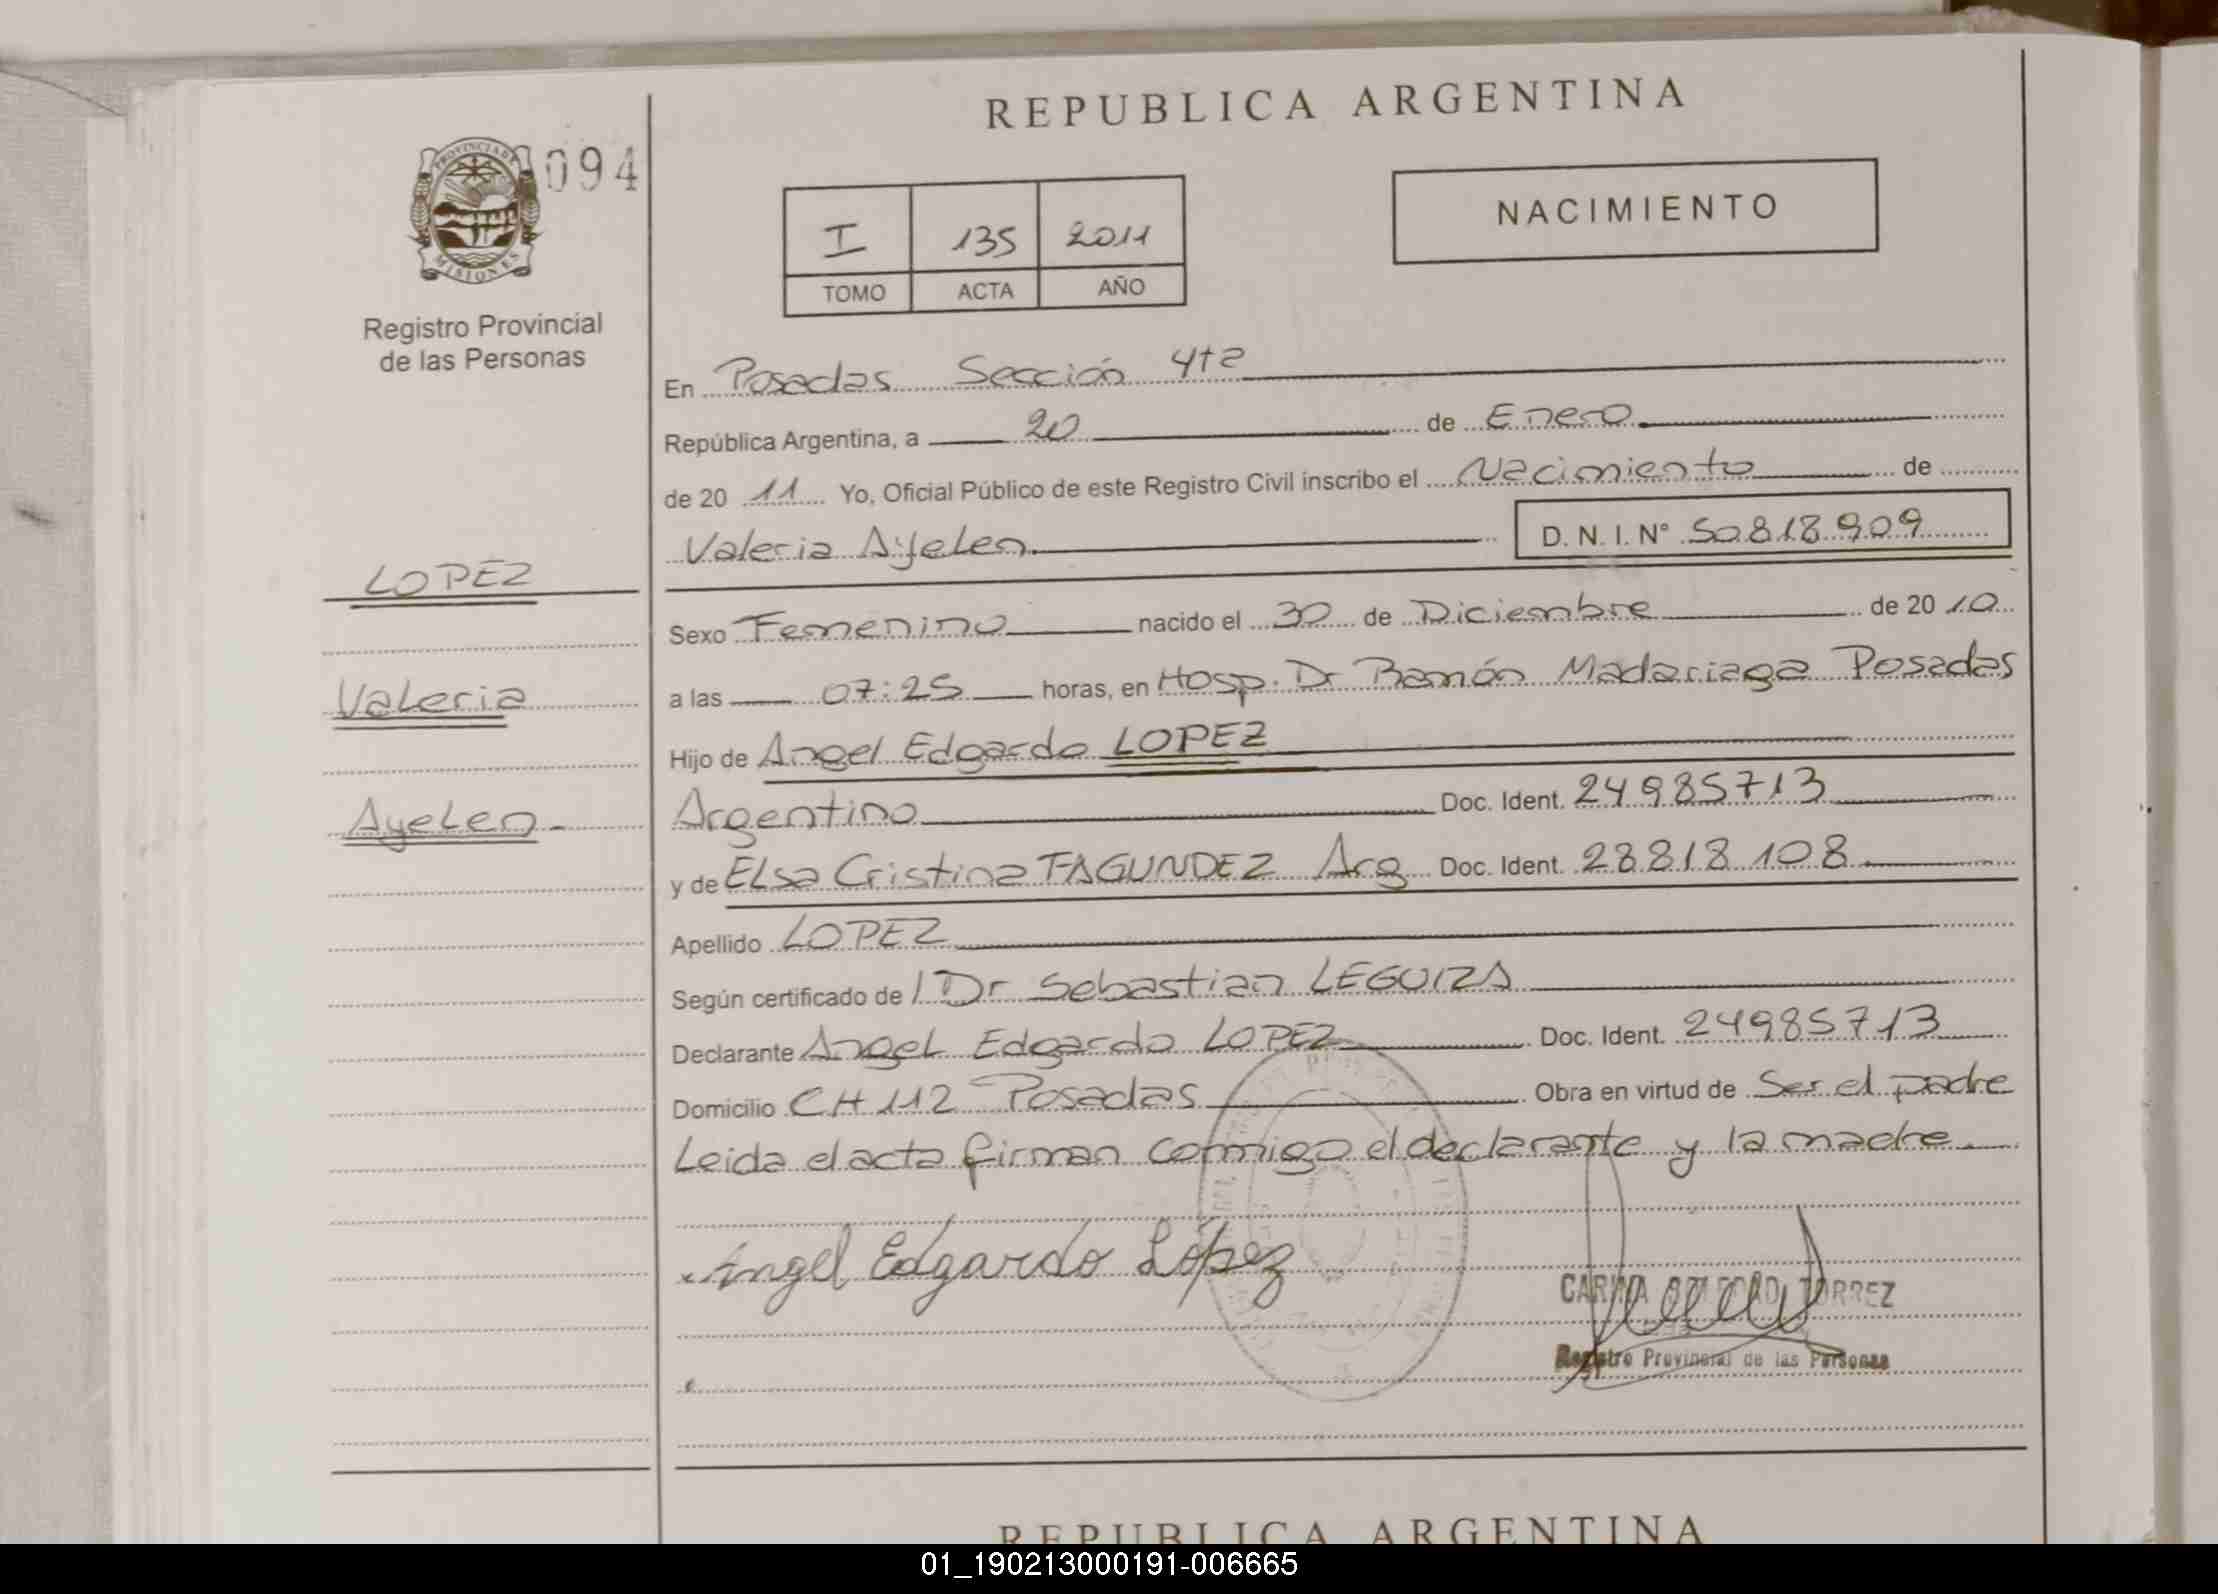 REPUBLICA ARGENTINA
PROVINCIA DE
MISIONES
094
Registro Provincial
de las Personas
I 135 2011
TOMO ACTA AÑO
NACIMIENTO
En Posadas Sección 4ta
República Argentina, a 20 de Enero
de 20 11 Yo, Oficial Público de este Registro Civil inscribo el Nacimiento de
Valeria Ayelen D. N. I. N° 50.818.909
LOPEZ
Valeria
Ayelen
Sexo Femenino nacido el 30 de Diciembre de 20 10
a las 07:25 horas, en Hosp. Dr Ramón Madariaga Posadas
Hijo de Angel Edgardo LOPEZ
Argentino Doc. Ident. 24985713
y de Elsa Cristina FAGUNDEZ Arg Doc. Ident. 28818108
Apellido LOPEZ
Según certificado de Dr Sebastian LEGUIZA
Declarante Angel Edgardo LOPEZ Doc. Ident. 24985713
Domicilio CH 112 Posadas Obra en virtud de Ser el padre
Leida el acta firman conmigo el declarante y la madre
Angel Edgardo López
TORREZ
Registro Provincial de las Personas
REPUBLICA ARGENTINA
01_190213000191-006665